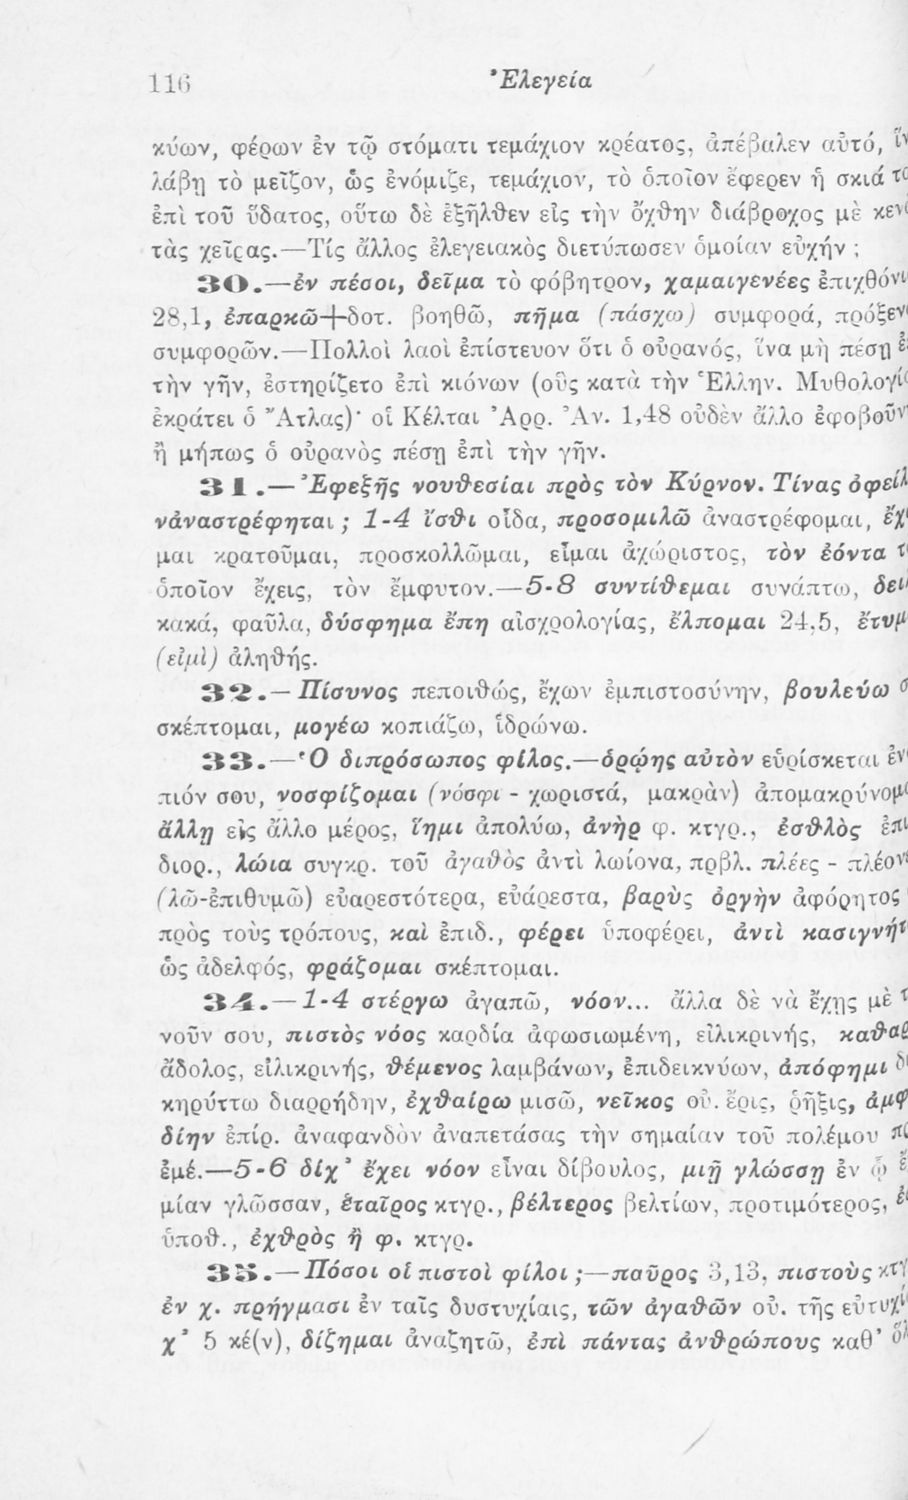 116
Ἐλεγεία
κύων, φέρων ἐν τῷ στόματι τεμάχιον κρέατος, ἀπέβαλεν αὐτό,
λάβῃ τὸ μεῖζον, ὡς ἐνόμιζε, τεμάχιον, τὸ ὁποῖον ἔφερεν ἡ σκιά
ἐπὶ τοῦ ὕδατος, οὕτω δὲ ἐξῆλθεν εἰς τὴν ὄχθην διάβροχος μὲ
τὰς χεῖρας.—Τίς ἄλλος ἐλεγειακὸς διετύπωσεν ὁμοίαν εὐχήν ;
30.—ἐν πέσοι, δεῖμα τὸ φόβητρον, χαμαιγενέες
28,1, ἐπαρκῶ+δοτ. βοηθῶ, πῆμα (πάσχω) συμφορά,
συμφορῶν.—Πολλοὶ λαοὶ ἐπίστευον ὅτι ὁ οὐρανός, ἵνα μὴ πέσῃ
τὴν γῆν, ἐστηρίζετο ἐπὶ κιόνων (οὓς κατὰ τὴν Ἑλλην.
ἐκράτει ὁ Ἄτλας)· οἱ Κέλται Ἀρρ. Ἀν. 1,48 οὐδὲν ἄλλο
ἢ μήπως ὁ οὐρανὸς πέσῃ ἐπὶ τὴν γῆν.
31.—Ἐφεξῆς νουθεσίαι πρὸς τὸν Κύρνον. Τίνας
νἀναστρέφηται ; 1-4 ἴσθι οἶδα, προσομιλῶ ἀναστρέφομαι,
μαι κρατοῦμαι, προσκολλῶμαι, εἶμαι ἀχώριστος, τὸν ἐόντα
ὁποῖον ἔχεις, τὸν ἔμφυτον.—5-8 συντίθεμαι συνάπτω,
κακά, φαῦλα, δύσφημα ἔπη αἰσχρολογίας, ἔλπομαι 24,5,
(εἰμὶ) ἀληθής.
32.—Πίσυνος πεποιθώς, ἔχων ἐμπιστοσύνην, βουλεύω
σκέπτομαι, μογέω κοπιάζω, ἱδρώνω.
33.—Ὁ διπρόσωπος φίλος.—ὁρῴης αὐτὸν εὑρίσκεται
πιόν σου, νοσφίζομαι (νόσφι - χωριστά, μακρὰν)
ἄλλῃ εἰς ἄλλο μέρος, ἵημι ἀπολύω, ἀνὴρ φ. κτγρ., ἐσθλὸς
διορ., λώια συγκρ. τοῦ ἀγαθὸς ἀντὶ λωίονα, πρβλ. πλέες -
(λῶ-ἐπιθυμῶ) εὐαρεστότερα, εὐάρεστα, βαρὺς ὀργὴν ἀφόρητος
πρὸς τοὺς τρόπους, καὶ ἐπιδ., φέρει ὑποφέρει, ἀντὶ
ὡς ἀδελφός, φράζομαι σκέπτομαι.
34.—1-4 στέργω ἀγαπῶ, νόον... ἄλλα δὲ νὰ ἔχῃς μὲ
νοῦν σου, πιστὸς νόος καρδία ἀφωσιωμένη, εἰλικρινής,
ἄδολος, εἰλικρινής, θέμενος λαμβάνων, ἐπιδεικνύων, ἀπόφημι
κηρύττω διαρρήδην, ἐχθαίρω μισῶ, νεῖκος οὐ. ἔρις, ῥῆξις,
δίην ἐπίρ. ἀναφανδὸν ἀναπετάσας τὴν σημαίαν τοῦ πολέμου
ἐμέ.—5-6 δίχ' ἔχει νόον εἶναι δίβουλος, μιῇ γλώσσῃ ἐν ᾧ
μίαν γλῶσσαν, ἑταῖρος κτγρ., βέλτερος βελτίων, προτιμότερος,
ὑποθ., ἐχθρὸς ἢ φ. κτγρ.
35.—Πόσοι οἱ πιστοὶ φίλοι ;—παῦρος 3,13, πιστοὺς
ἐν χ. πρήγμασι ἐν ταῖς δυστυχίαις, τῶν ἀγαθῶν οὐ. τῆς
χ' 5 κέ(ν), δίζημαι ἀναζητῶ, ἐπὶ πάντας ἀνθρώπους καθ'